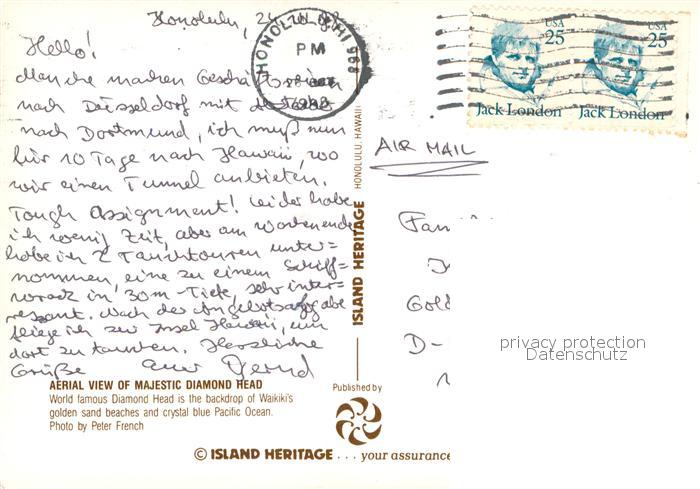 Honolulu, 24.10.88
Hello!
Manche machen Geschäftsreisen
nach Düsseldorf mit
nach Dortmund, ich muß nun
für 10 Tage nach Hawaii, wo
wir einen Tunnel anbieten.
Tough Assignment! Leider habe
ich wenig Zeit, aber am Wochenende
habe ich 2 Tauchtouren unter=
nommen, eine zu einem Schiff=
wrack in 30m-Tiefe, sehr inter=
ressant. Nach der Angebotsabgabe
fliege ich zur Insel Hawaii, um
dort zu tauchen. Herzliche
Grüße Euer Bernd
AERIAL VIEW OF MAJESTIC DIAMOND HEAD
World famous Diamond Head is the backdrop of Waikiki's
golden sand beaches and crystal blue Pacific Ocean.
Photo by Peter French
Published by
© ISLAND HERITAGE . . . your assurance
ISLAND HERITAGE HONOLULU, HAWAII
HONOLULU, HI 968
PM
USA
25
Jack London
USA
25
Jack London
AIR MAIL
Fam
Gold
D-
privacy protection
Datenschutz